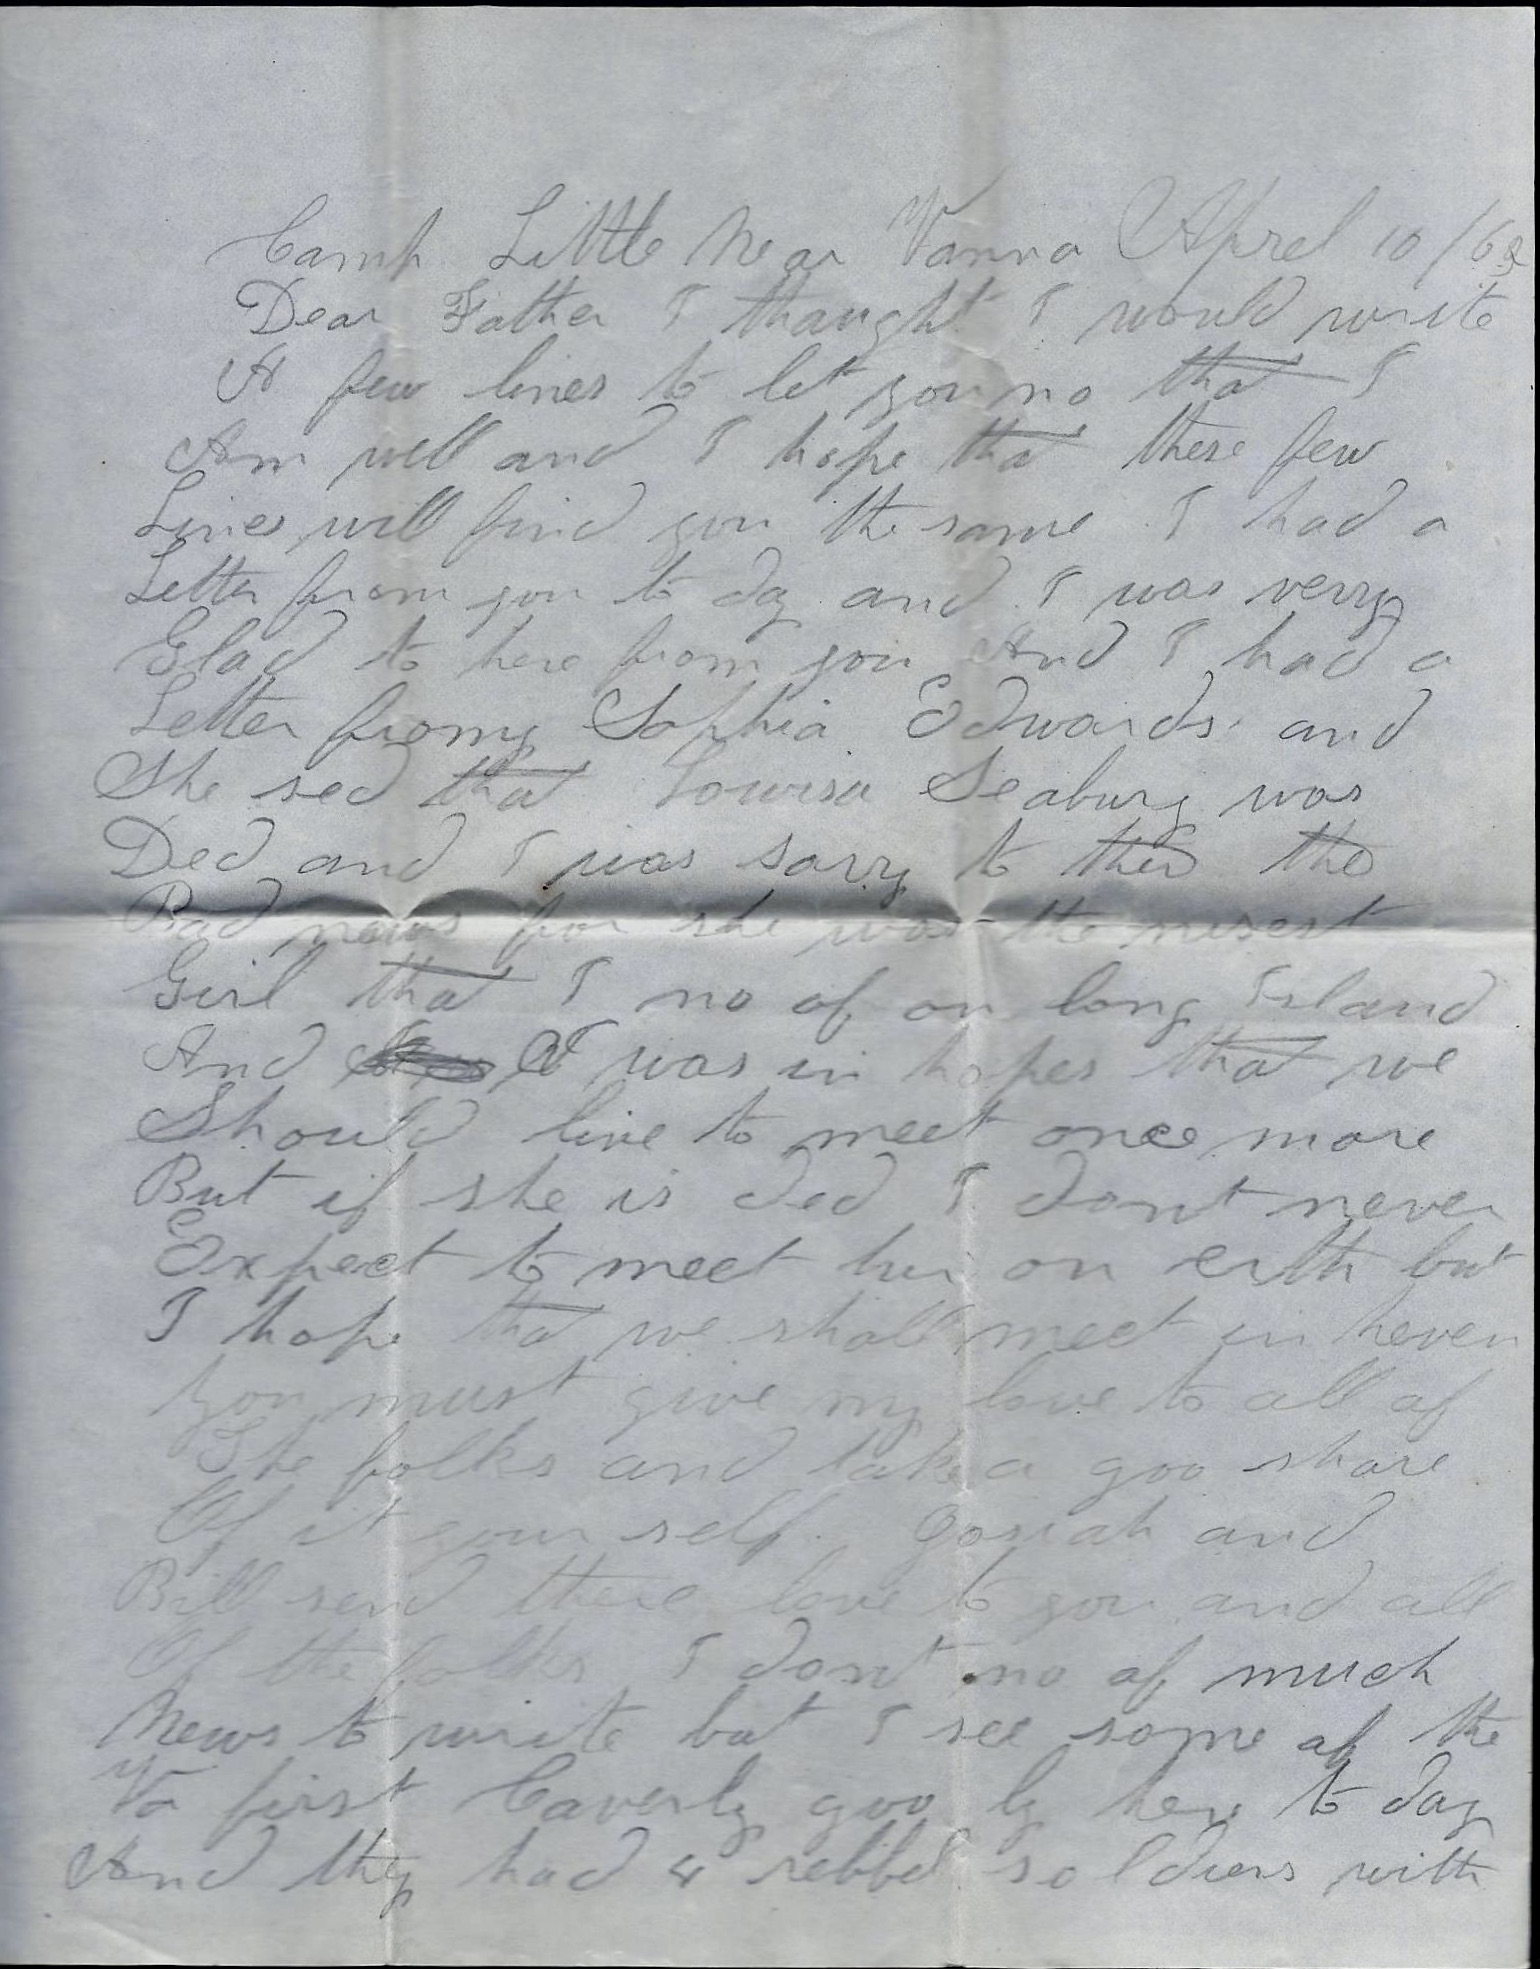 Camp Little Near Vanna April 10 /62
Dear Father I thought I would write
A few lines to let you no that I
Am well and I hope that these few
Lines will find you the same I had a
Letter from you to day and I was verry
Glad to here from you And I had a
Letter from Sophia Edwards and
She sed that Lowisa Seabury was
Ded and I was sorry to the
Bad news for she was the nisest
Girl that I no of on long Island
And I was in hopes that we
Should live to meet once more
But if she is ded I dont never
Expect to meet her on erth but
I hope that we shall meet in heven
You must give my love to all of
The folks and take a goo share
Of it your self. Josiah and
Bill send there love to you and all
Of the folks I dont no of much
News to write but I see some of the
Va first Caverly goo by here to day
And they had 4 rebbel soldiers with